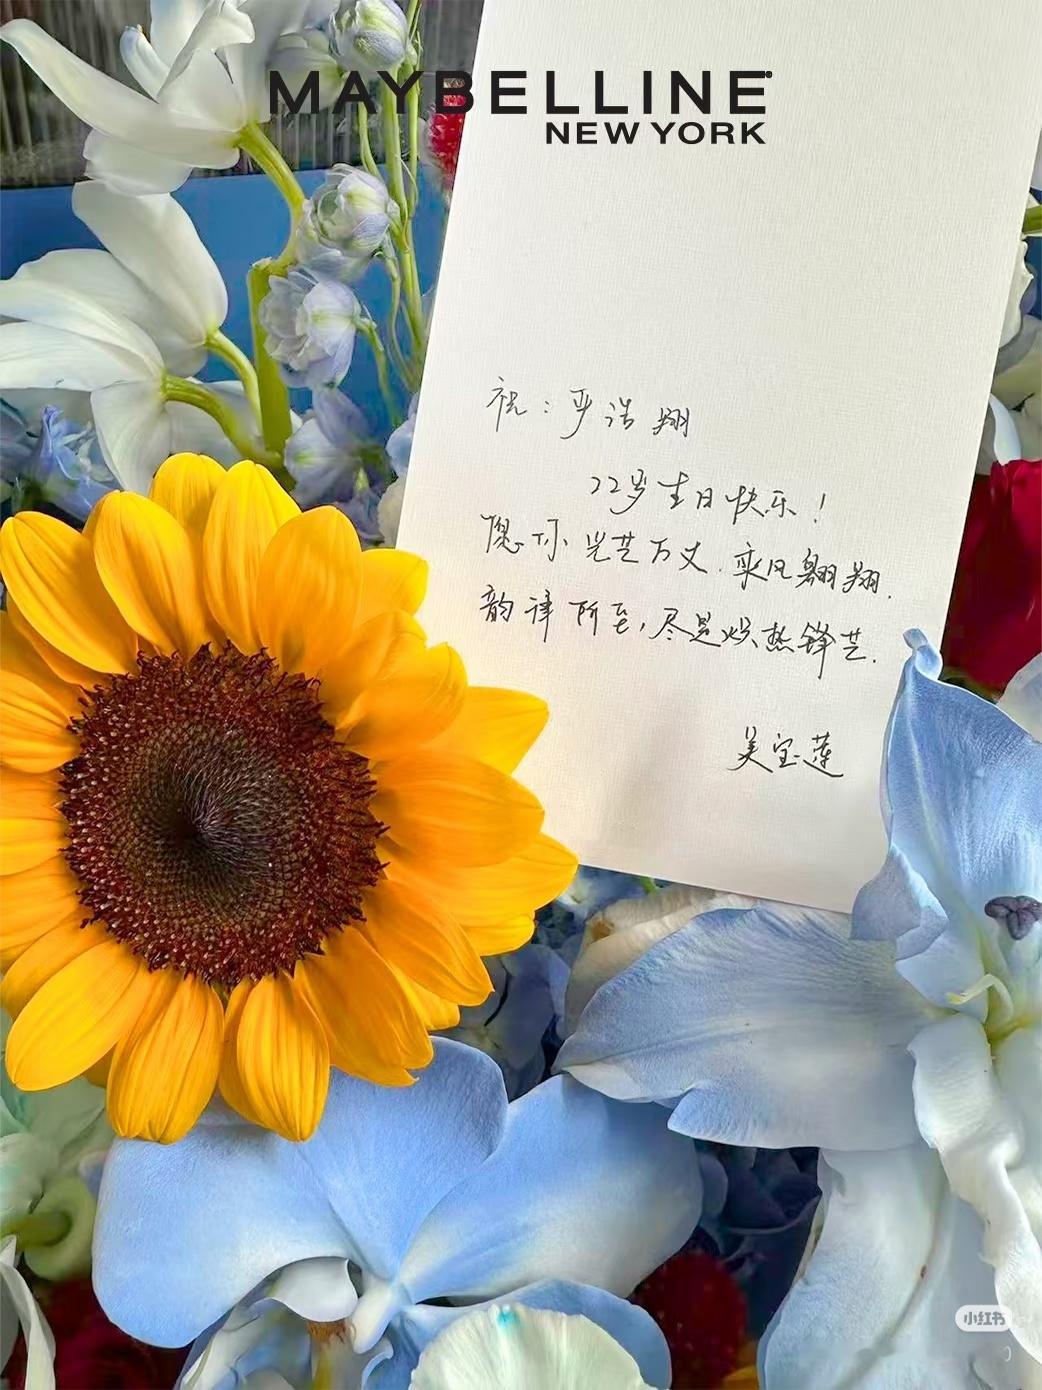 MAYBELLINE
NEW YORK
祝：严浩翔
22岁生日快乐！
愿你光芒万丈.乘风翱翔.
韵律所至，尽是炽热锋芒.
吴宝莲
小红书